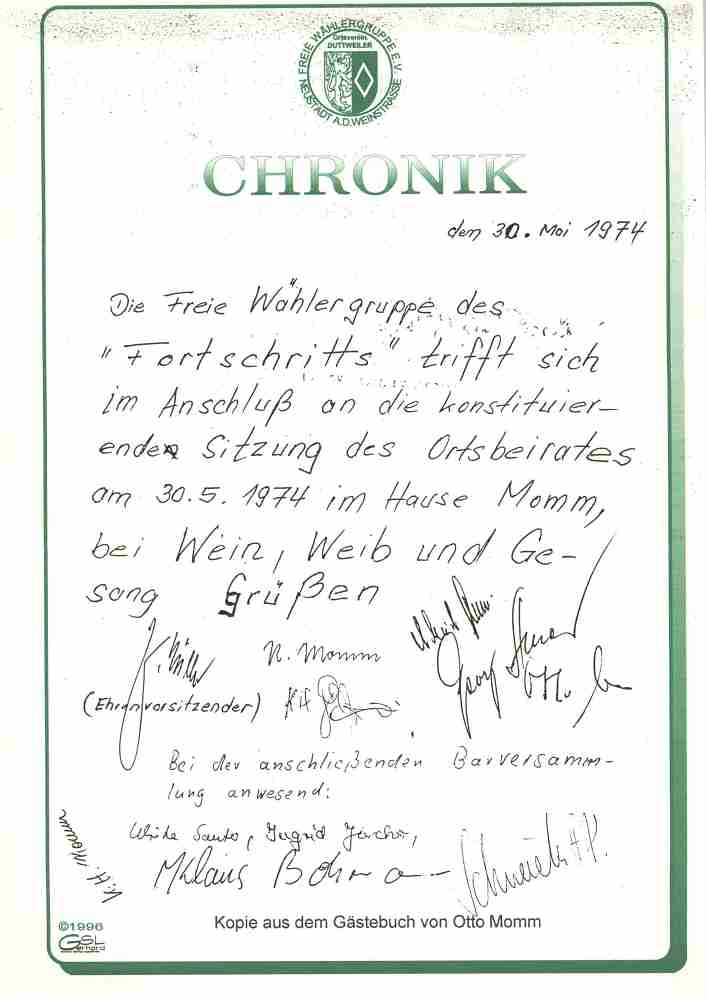 FREIE WÄHLERGRUPPE E.V.
Ortsverein
DUTTWEILER
NEUSTADT A.D.WEINSTRASSE
CHRONIK
den 30. Mai 1974
Die Freie Wählergruppe des
"Fortschritts" trifft sich
im Anschluß an die konstituier-
enden Sitzung des Ortsbeirates
am 30.5. 1974 im Hause Momm,
bei Wein, Weib und Ge-
sang Grüßen
N. Momm
(Ehrenvorsitzender)
Georg
Otto
Bei der anschließenden Barversamm-
lung anwesend:
Ingrid
Klaus
K. H. Momm
©1996
GSL
Gerhard
Kopie aus dem Gästebuch von Otto Momm